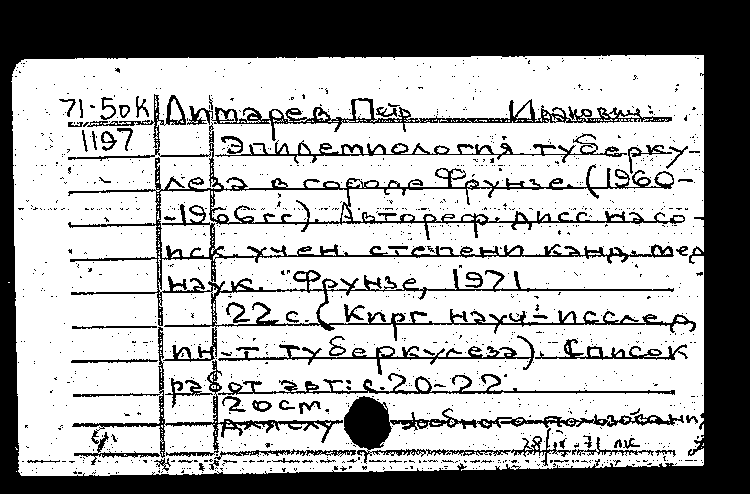 71-5дк Дитарев, Петр Иванович:
1197 Эпидемиология туберку-
леза в городе Фрунзе. (1960-
-1966гг). Автореф. дисс на со-
иск. учен. степени канд. мед
наук. Фрунзе, 1971
22 с. (Кирг. науч-исслед
ин-т туберкулеза). Список
работ авт: с. 20-22.
20 ст.
для слу жебного пользования
28/IX-71